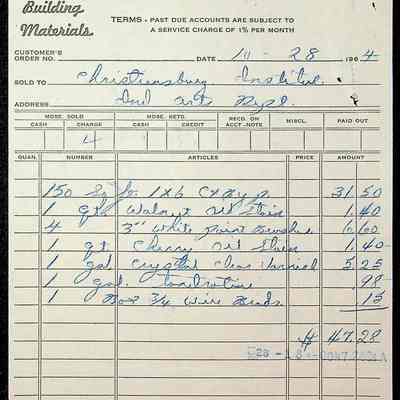 Building
Materials.
TERMS - PAST DUE ACCOUNTS ARE SUBJECT TO
A SERVICE CHARGE OF 1% PER MONTH
CUSTOMER'S
ORDER NO. DATE 10 - 28 1964
SOLD TO Christiansburg Institute
ADDRESS Ind Arts Dept.
MDSE. SOLD MDSE. RETD. RECD. ON ACCT.-NOTE MISCL. PAID OUT
CASH CHARGE CASH CREDIT
4
QUAN. NUMBER ARTICLES PRICE AMOUNT
150 1x6 31.50
1 qt Walnut Oil Stain 1.40
4 3" White Paint Brushes
1 qt. Cherry Oil Stain 1.40
1 gal. Crystal Clear Varnish 5.25
1 gal. .98
1 Box 3/4 Wire Brads. 15
$ 47.28